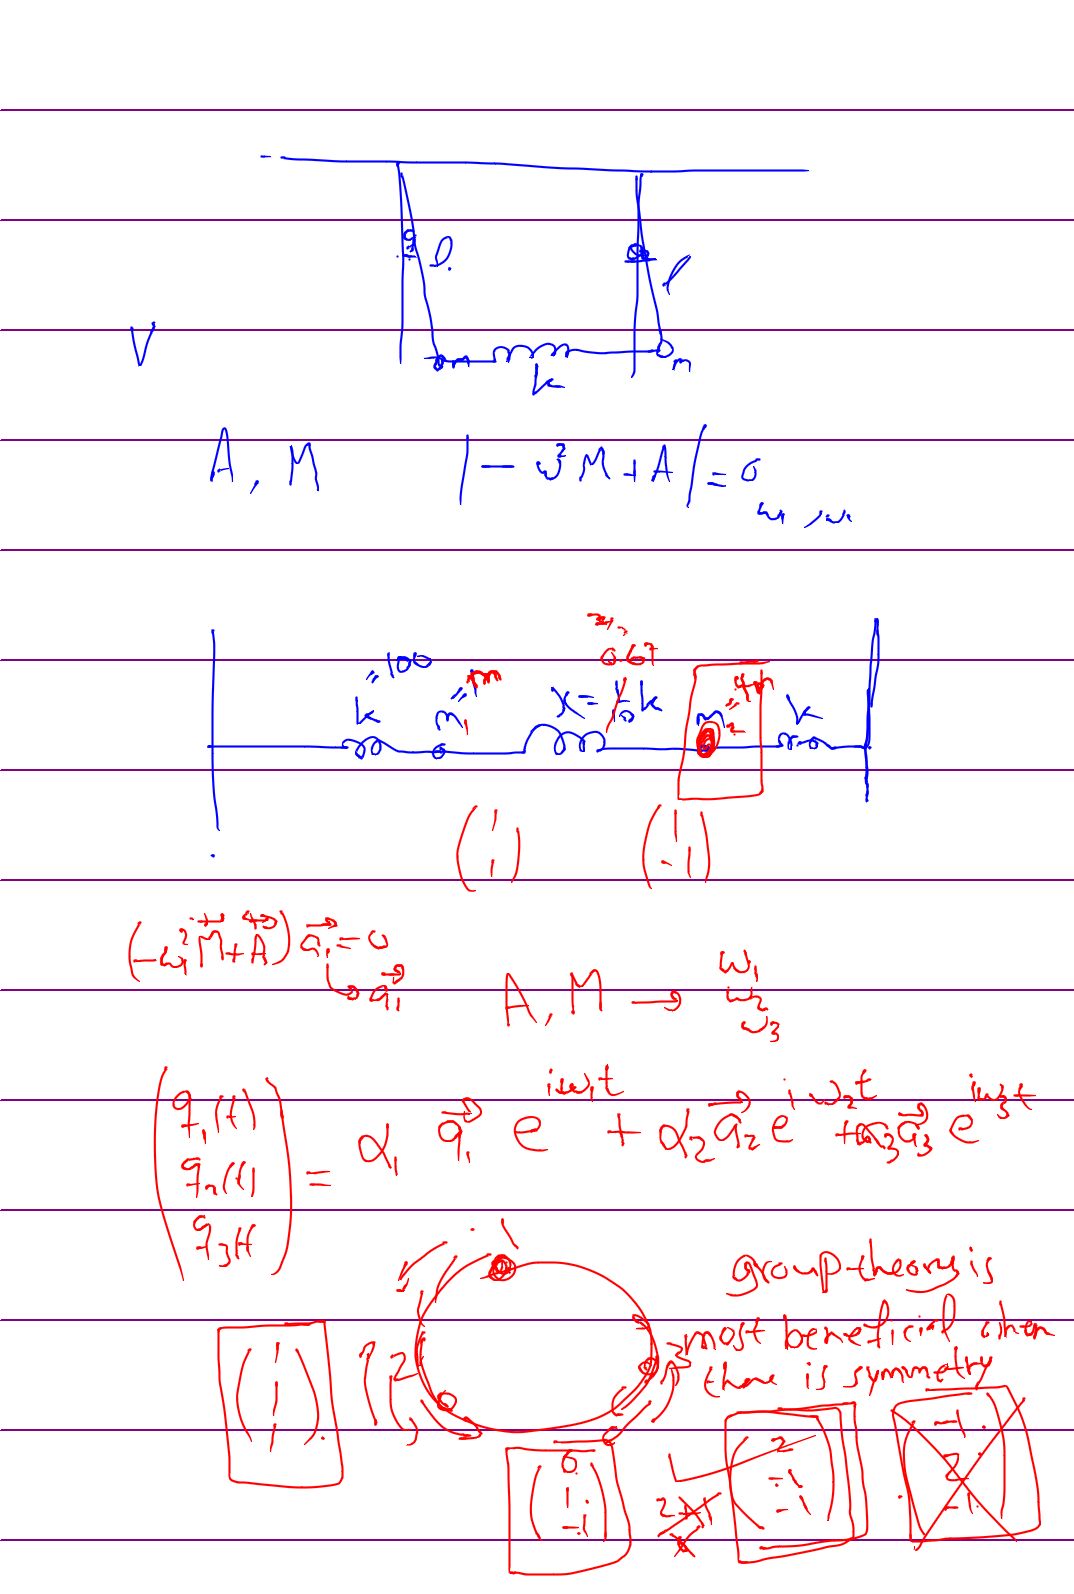 l
l
V
m
k
m
A, M |-ω²M+A|=0
ω₁, ω₂
0.67
k =100
m₁ =1m
x= k
m₂ =4m
k
(1 1)
(1 -1)
(-ω₁²M+A)a₁=0
→a₁
A, M → ω₁ ω₂ ω₃
(q₁(t) q₂(t) q₃(t) = α₁ a₁ e^{iω₁t} + α₂ a₂ e^{iω₂t} + α₃ a₃ e^{iω₃t}
1
2
3
group theory is
most beneficial when
there is symmetry
(1 1 1)
(0 1 -1)
(2 -1 -1)
(-1 2 -1)